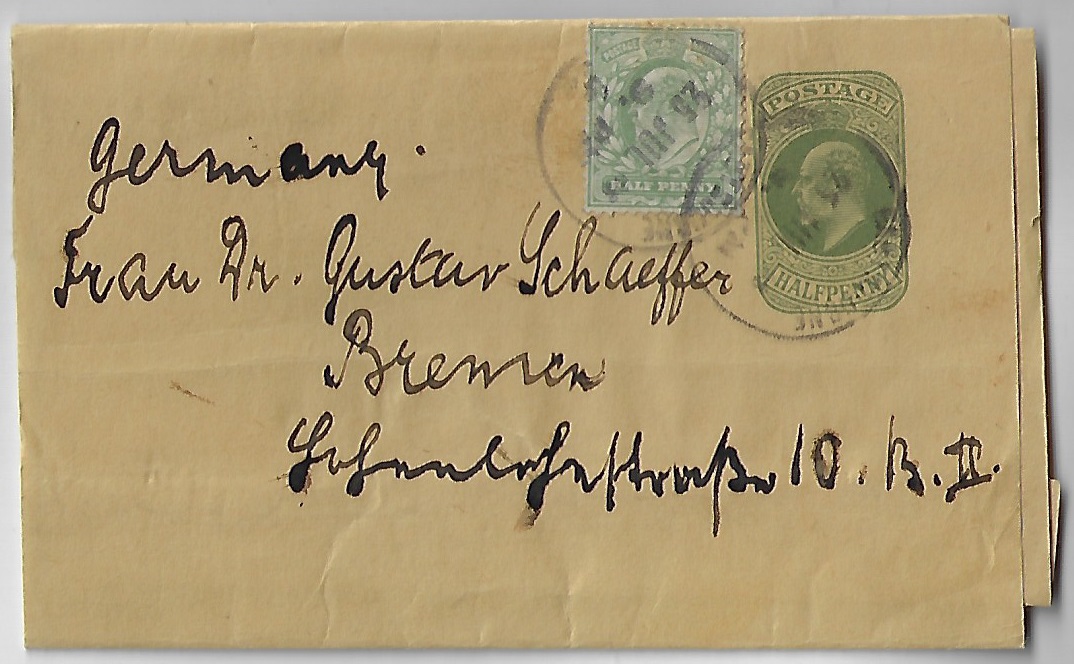 POSTAGE
HALF PENNY
POSTAGE
HALFPENNY
Germany.
Frau Dr. Gustav Schaeffer
Bremen
Hohenlohestraße 10. B. II.